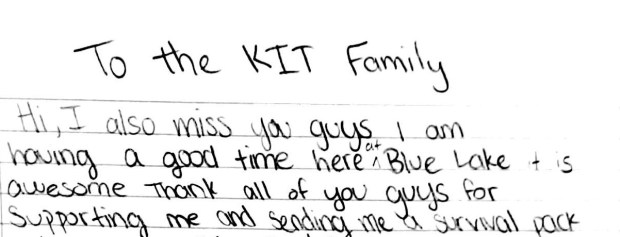 To the KIT Family
Hi, I also miss you guys, I am
having a good time here at Blue Lake t is
awesome Thank all of you guys for
Supporting me and sending me a survival pack